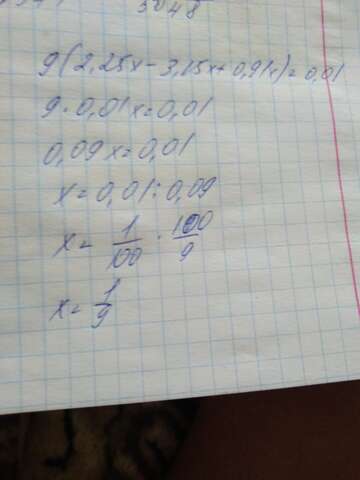 3048
9(2,25x-3,15x+0,91x)=0,01
9·0,01x=0,01
0,09x=0,01
x=0,01:0,09
x= 1/100 · 100/9
x= 1/9